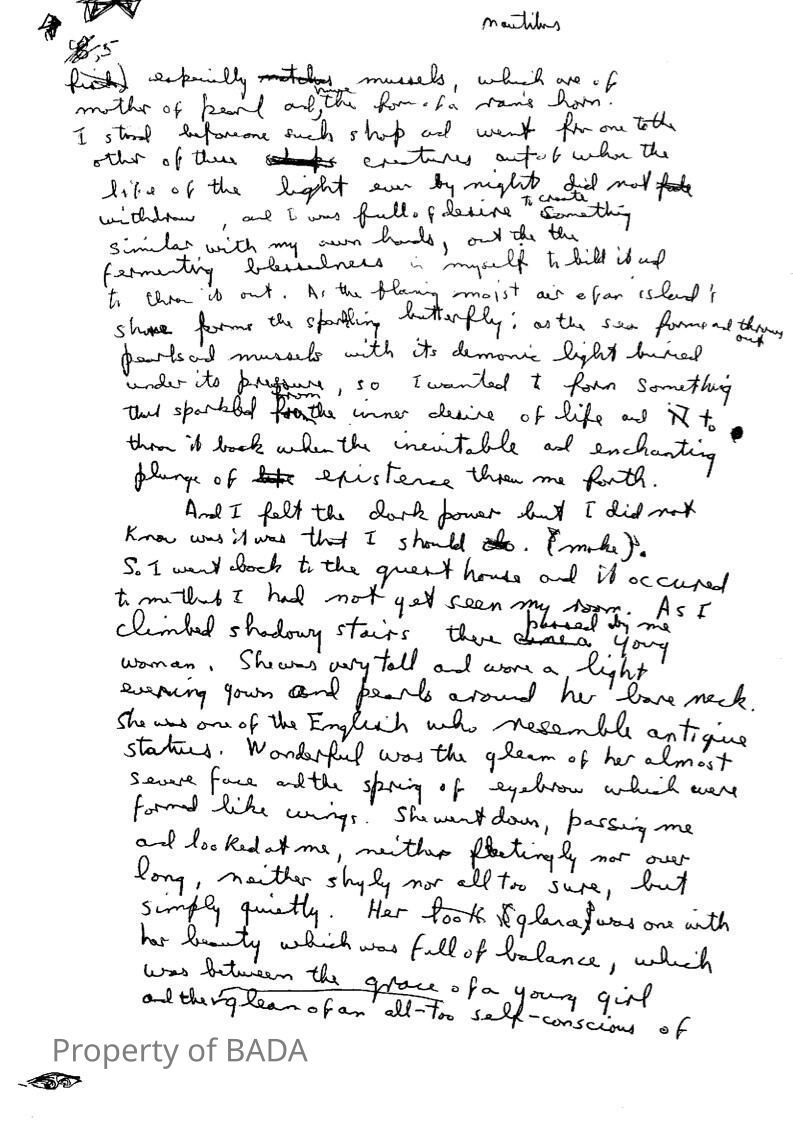 nautilus
8,5
fish) especially matches mussels, which are of
mother of pearl and, have the form of a ram's horn.
I stood before one such shop and went from one to the
other of these shops creatures out of whom the
life of the light even by night did not fade
withdraw, and I was full of desire to create something
similar with my own hands, out the the
fermenting blessedness in myself to build it and
to throw it out. As the flaming moist air of an island's
shore forms the sparkling butterfly; as the sea forms and throws
out
pearls and mussels with its demonic light buried
under its pressure, so I wanted to form something
that sparkled from from the inner desire of life and to
throw it back when the inevitable and enchanting
plunge of life existence threw me forth.
And I felt the dark power but I did not
know was it was that I should do. (make).
So I went back to the guest house and it occured
to me that I had not yet seen my room. As I
climbed shadowy stairs there came a passed by me young
woman. She was very tall and wore a light
evening gown and pearls around her bare neck.
She was one of the English who resemble antique
statues. Wonderful was the gleam of her almost
severe face and the spring of eyebrow which were
formed like wings. She went down, passing me
and looked at me, neither fleetingly nor over
long, neither shyly nor all too sure, but
simply quietly. Her look (glance) was one with
her beauty which was full of balance, which
was between the grace of a young girl
and the gleam of an all-too self-conscious of
Property of BADA